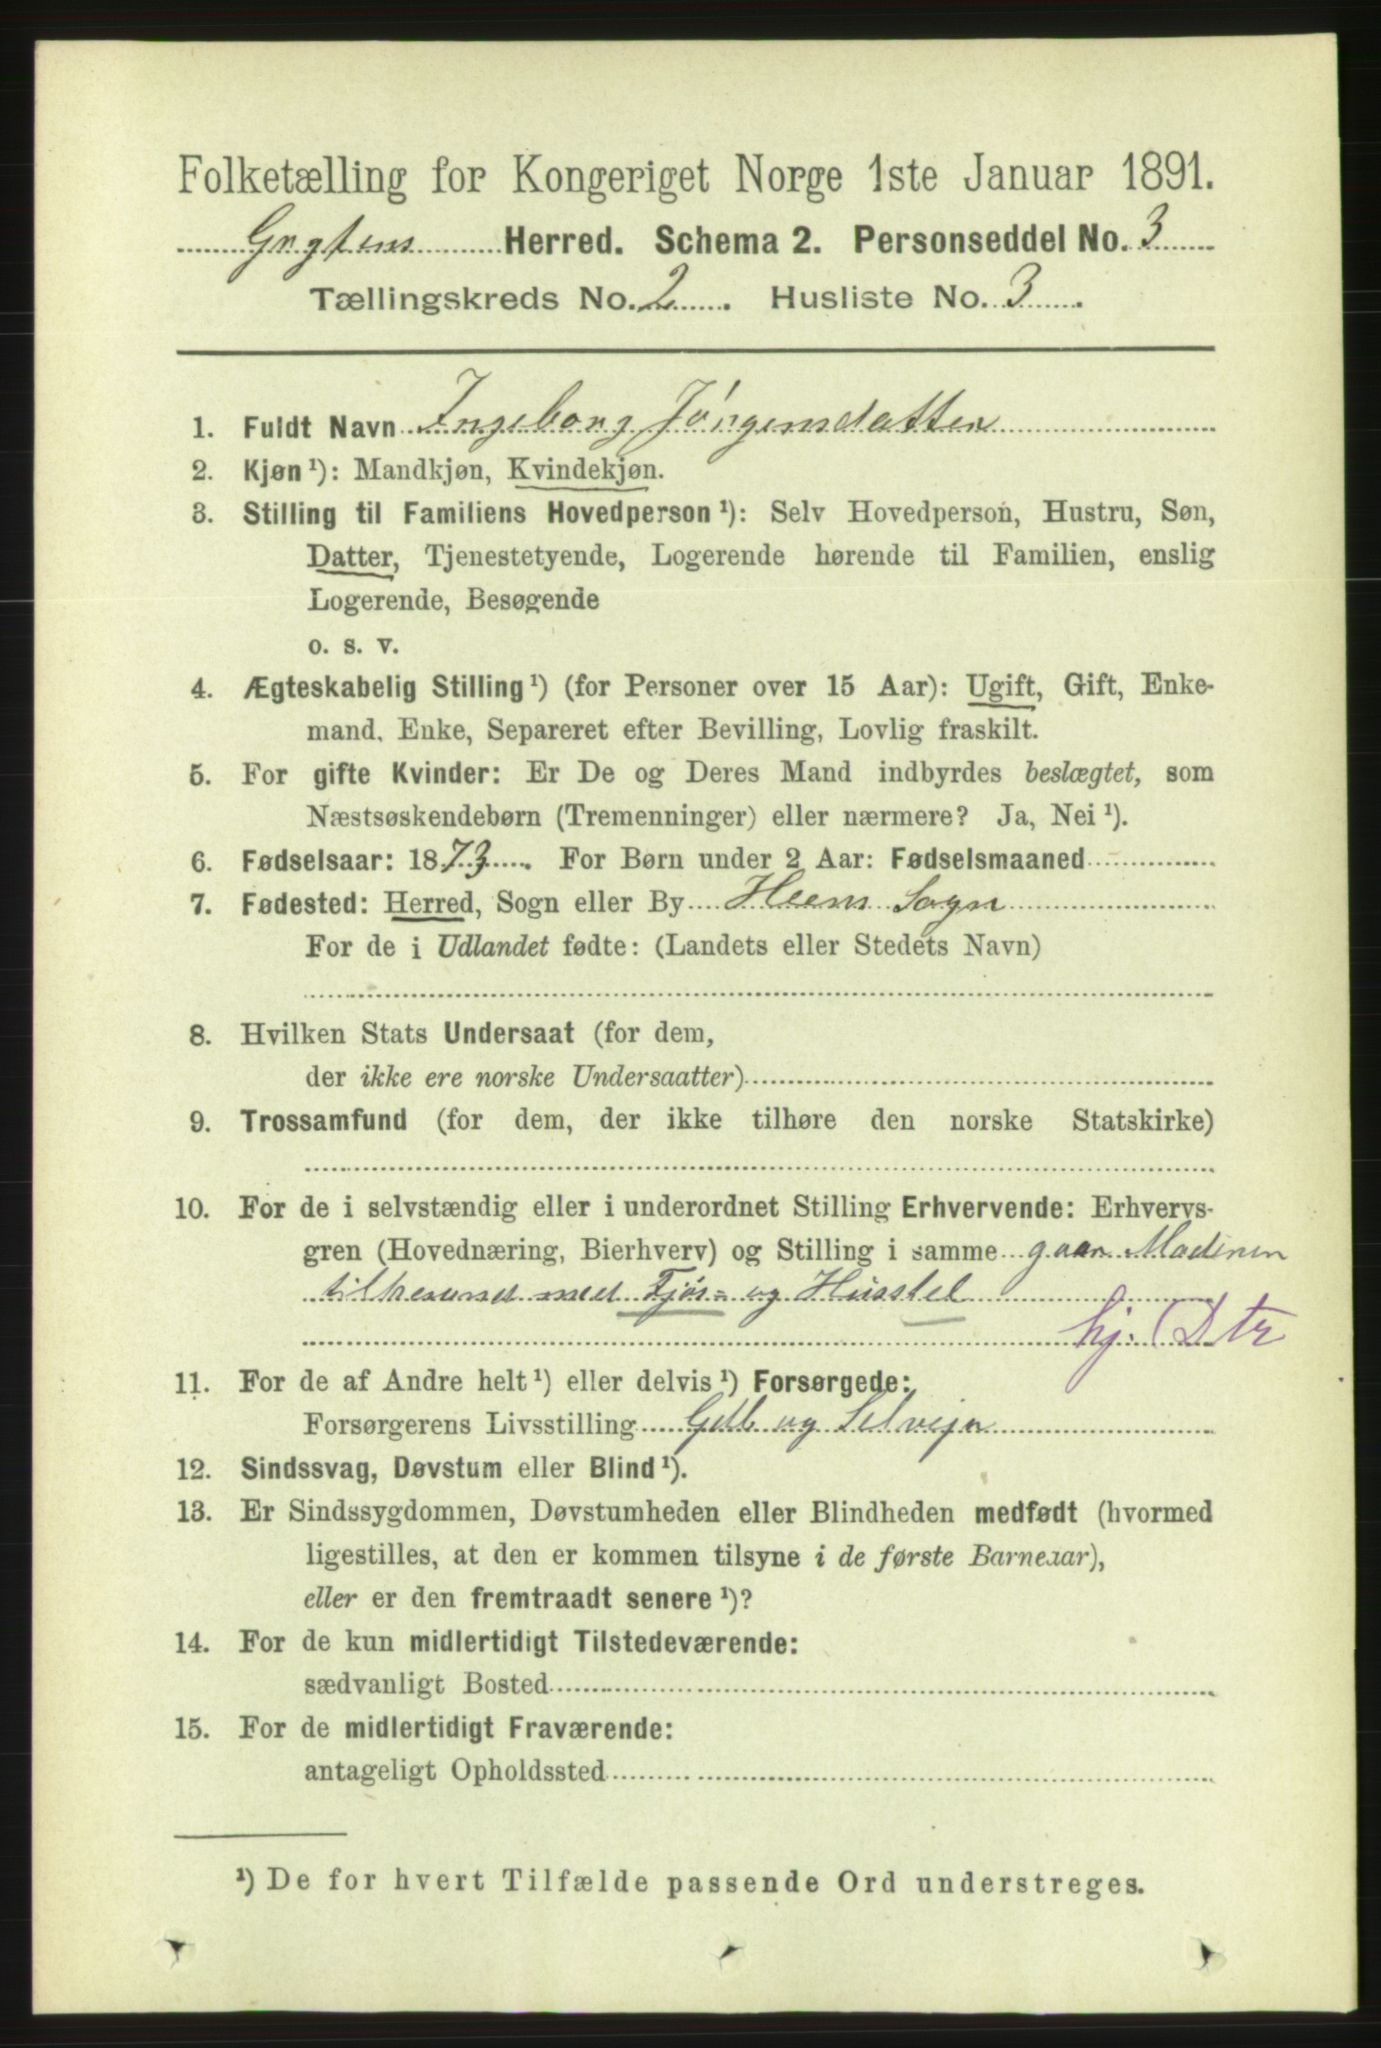 Folketælling for Kongeriget Norge 1ste Januar 1891.
Grytens Herred. Schema 2. Personseddel No. 3
Tællingskreds No. 2. Husliste No. 3.
1. Fuldt Navn Ingeborg Jörgensdatter
2. Kjøn ¹): Mandkjøn, Kvindekjøn.
3. Stilling til Familiens Hovedperson ¹): Selv Hovedperson, Hustru, Søn,
Datter, Tjenestetyende, Logerende hørende til Familien, enslig
Logerende, Besøgende
o. s. v.
4. Ægteskabelig Stilling ¹) (for Personer over 15 Aar): Ugift, Gift, Enke-
mand, Enke, Separeret efter Bevilling, Lovlig fraskilt.
5. For gifte Kvinder: Er De og Deres Mand indbyrdes beslægtet, som
Næstsøskendebørn (Tremenninger) eller nærmere? Ja, Nei ¹).
6. Fødselsaar: 1873. For Børn under 2 Aar: Fødselsmaaned
7. Fødested: Herred, Sogn eller By Heens Sogn
For de i Udlandet fødte: (Landets eller Stedets Navn)
8. Hvilken Stats Undersaat (for dem,
der ikke ere norske Undersaatter)
9. Trossamfund (for dem, der ikke tilhøre den norske Statskirke)
10. For de i selvstændig eller i underordnet Stilling Erhvervende: Erhvervs-
gren (Hovednæring, Bierhverv) og Stilling i samme gaar Moderen
tilhaand med Fjøs- og Husstel
hj. Dtr
11. For de af Andre helt ¹) eller delvis ¹) Forsørgede:
Forsørgerens Livsstilling Gdb og Selvejer
12. Sindssvag, Døvstum eller Blind ¹).
13. Er Sindssygdommen, Døvstumheden eller Blindheden medfødt (hvormed
ligestilles, at den er kommen tilsyne i de første Barneaar),
eller er den fremtraadt senere ¹)?
14. For de kun midlertidigt Tilstedeværende:
sædvanligt Bosted
15. For de midlertidigt Fraværende:
antageligt Opholdssted
¹) De for hvert Tilfælde passende Ord understreges.